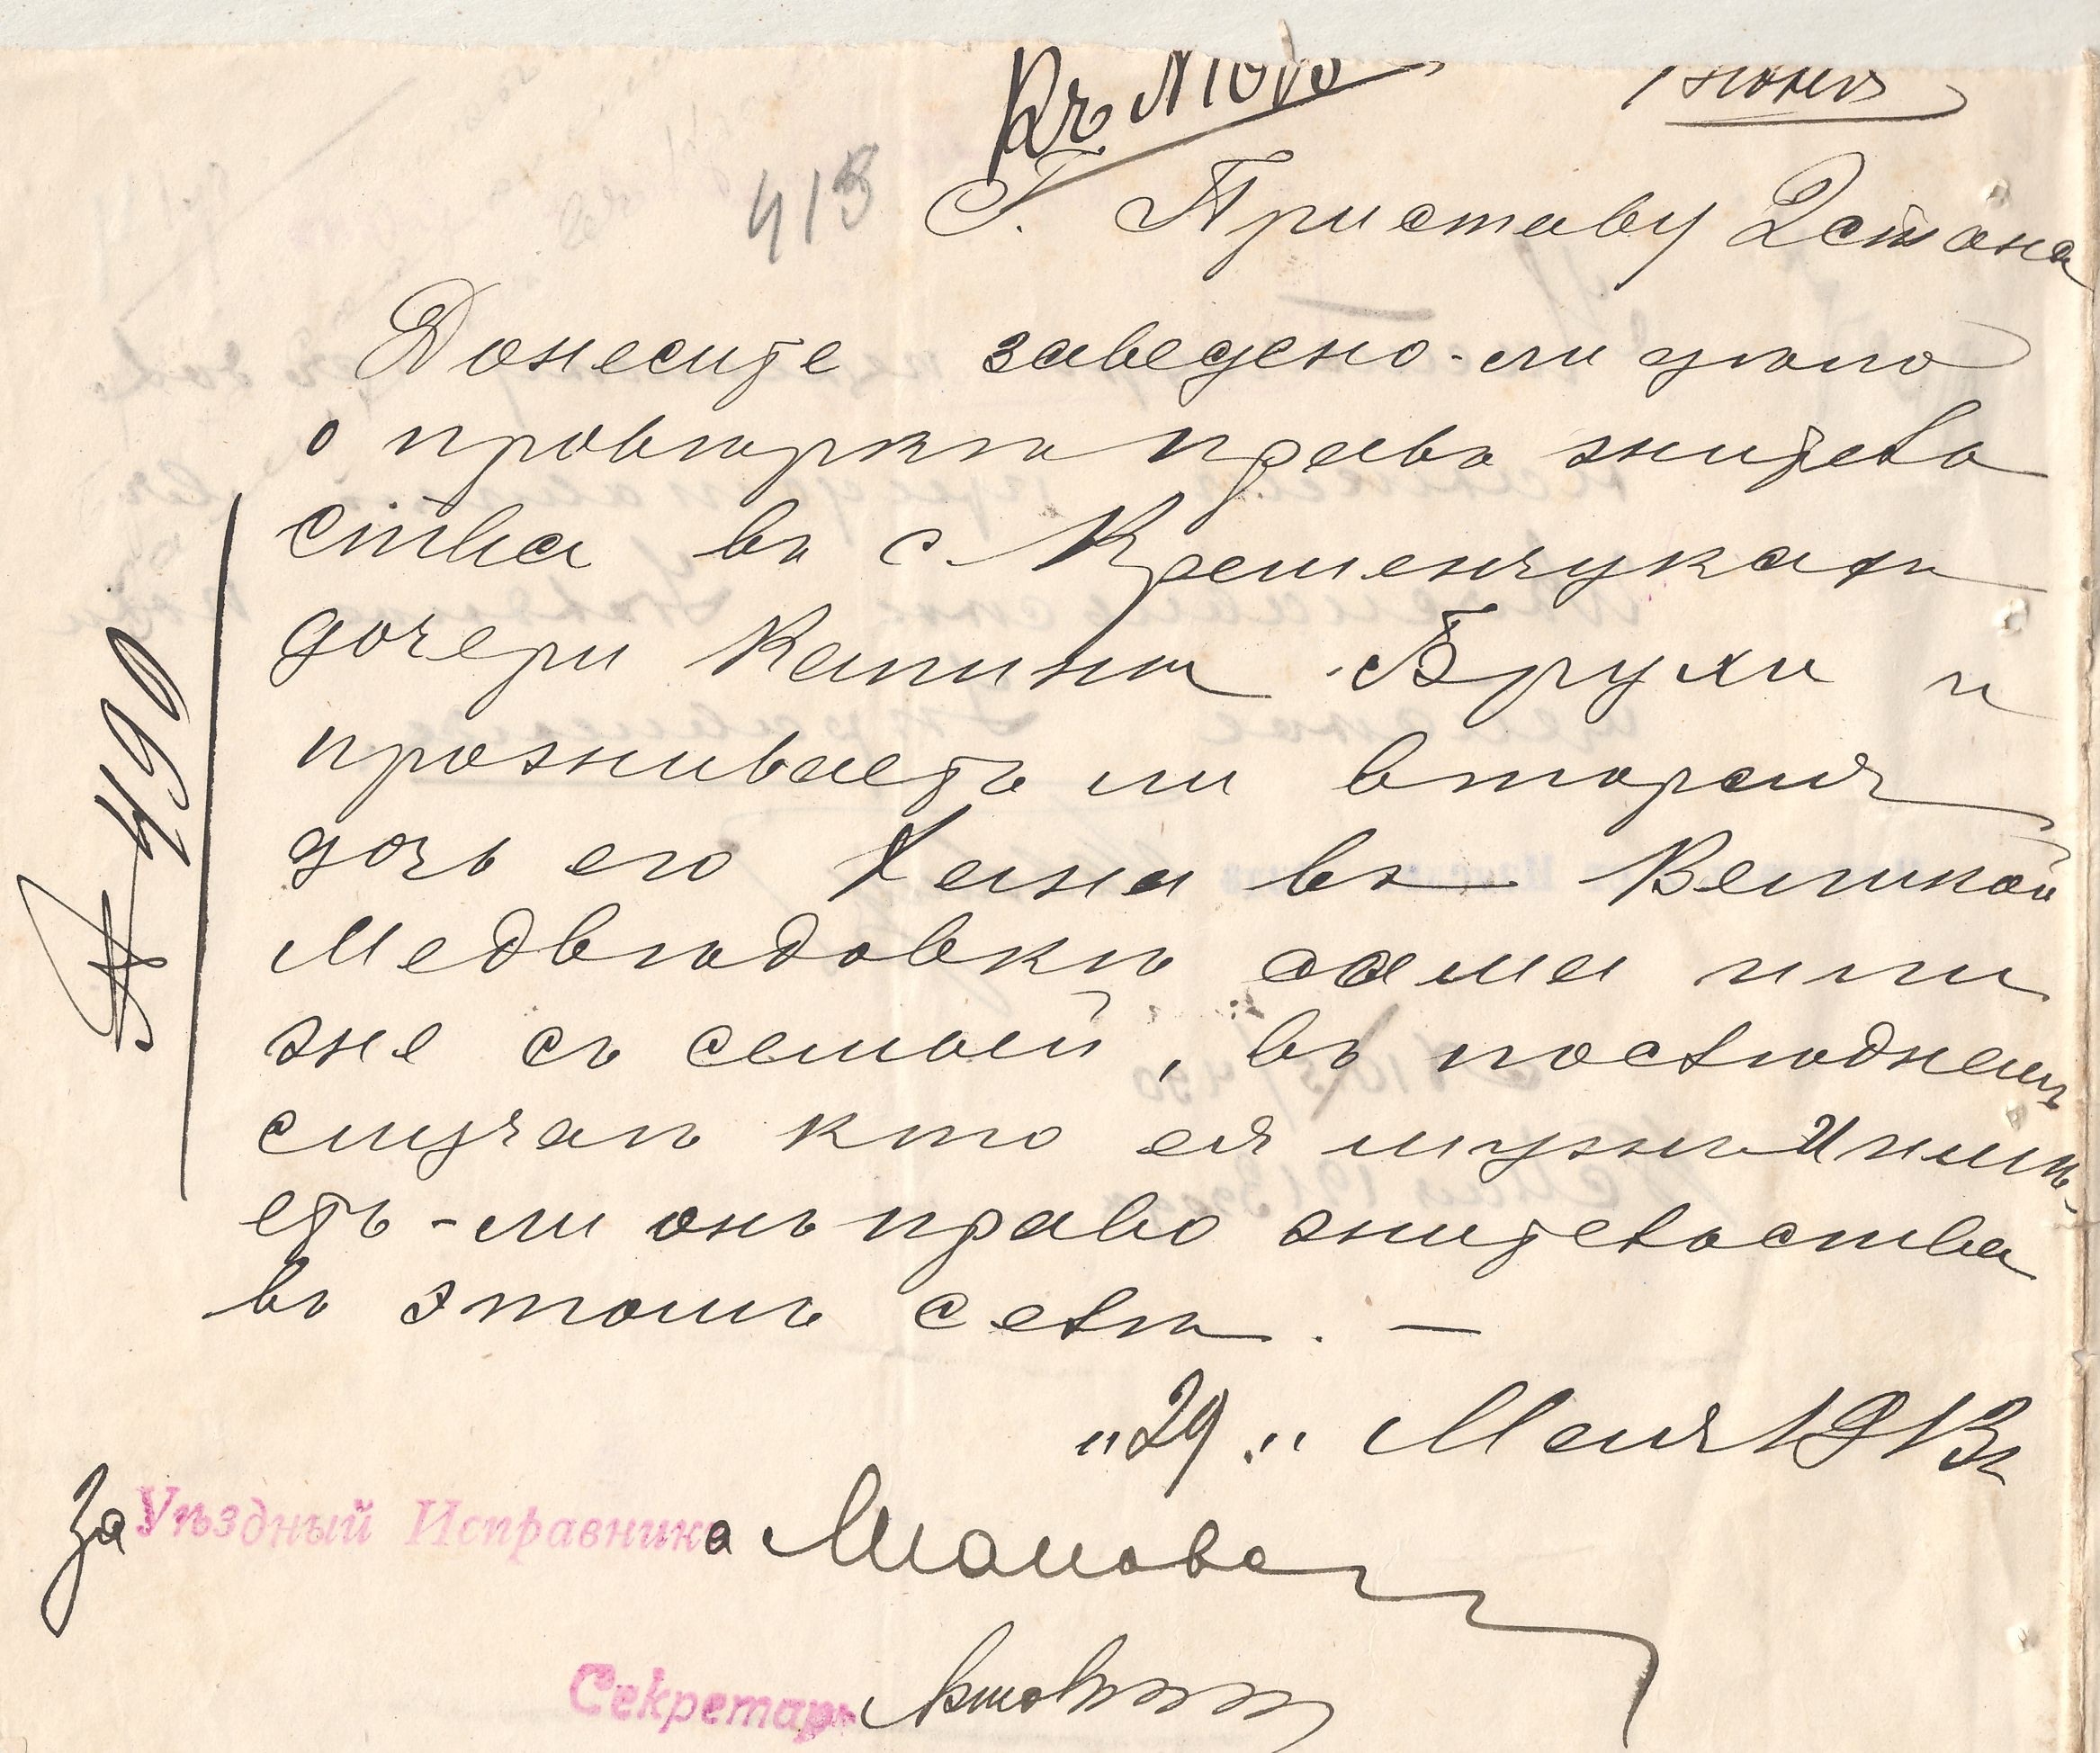 Къ №
413
Г. Приставу 2 стана
Донесите заведено-ли дѣло
о провѣркѣ права житель
ства въ с. Кременчукахъ
дочери Капинъ Брухи и
проживаетъ ли вторая
дочь его Хана въ Великой
Медвѣдовкѣ сама или
же съ семьей, въ послѣднемъ
случаѣ кто ея мужъ и имѣ-
етъ-ли онъ право жительства
въ этомъ селѣ. —
№ 490
"29" Мая 1913 г.
За Уѣздный Исправника
Секретарь